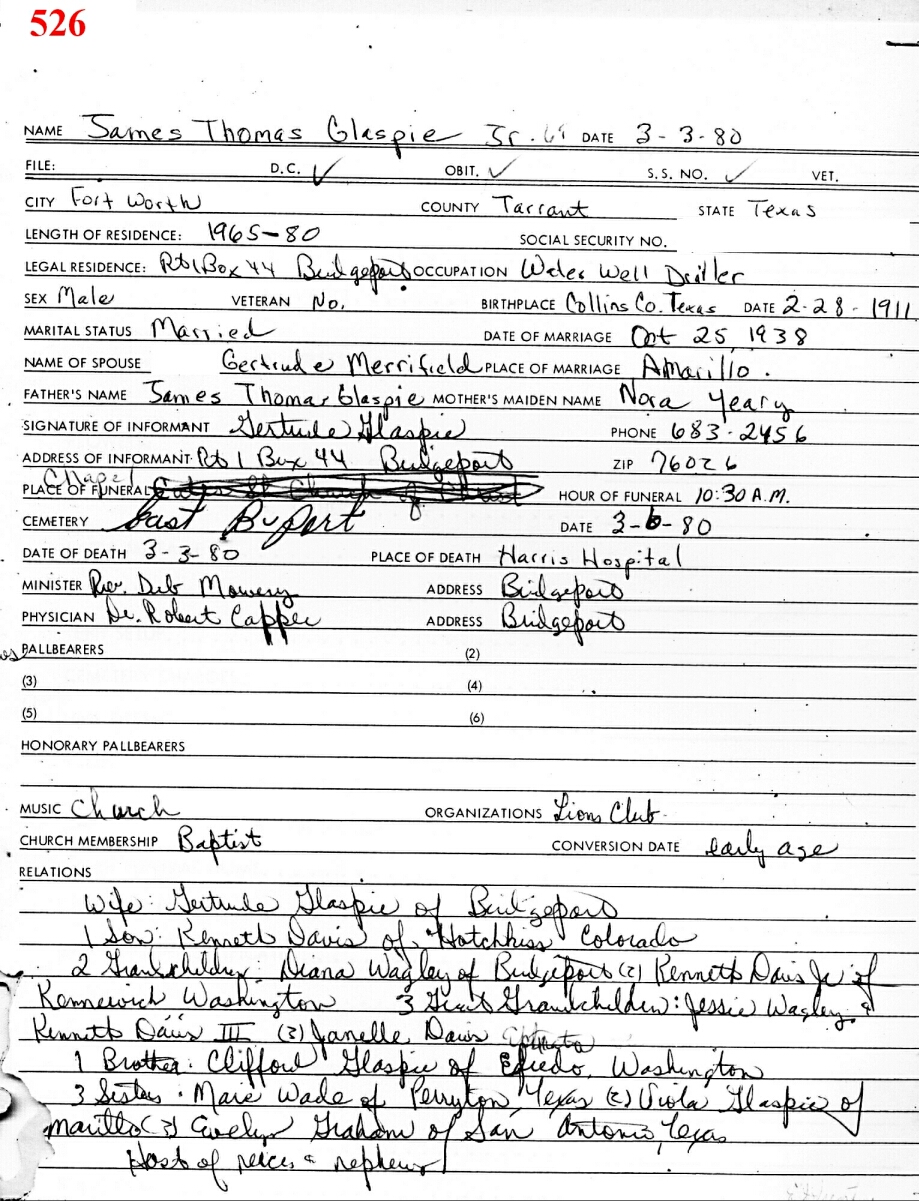 526
NAME James Thomas Glaspie Jr. DATE 3-3-80
FILE: D.C. ✓ OBIT. ✓ S.S. NO. ✓ VET.
CITY Fort Worth COUNTY Tarrant STATE Texas
LENGTH OF RESIDENCE: 1965-80 SOCIAL SECURITY NO.
LEGAL RESIDENCE: Rt 1 Box 44 Bridgeport OCCUPATION Water Well Driller
SEX Male VETERAN No. BIRTHPLACE Collins Co. Texas DATE 2-28-1911
MARITAL STATUS Married DATE OF MARRIAGE Oct 25, 1938
NAME OF SPOUSE Gertrude Merrifield PLACE OF MARRIAGE Amarillo.
FATHER'S NAME James Thomas Glaspie MOTHER'S MAIDEN NAME Nora Yeary
SIGNATURE OF INFORMANT Gertrude Glaspie PHONE 683-2456
ADDRESS OF INFORMANT Rt 1 Box 44 Bridgeport ZIP 76026
PLACE OF FUNERAL Chapel HOUR OF FUNERAL 10:30 A.M.
CEMETERY East B-port DATE 3-6-80
DATE OF DEATH 3-3-80 PLACE OF DEATH Harris Hospital
MINISTER Rev. Deb Mowery ADDRESS Bridgeport
PHYSICIAN Dr. Robert Capper ADDRESS Bridgeport
PALLBEARERS (2)
(3) (4)
(5) (6)
HONORARY PALLBEARERS
MUSIC Church ORGANIZATIONS Lions Club
CHURCH MEMBERSHIP Baptist CONVERSION DATE early age
RELATIONS
Wife: Gertrude Glaspie of Bridgeport
1 Son: Kenneth Davis of Hotchkiss Colorado
2 Grandchildren: Diana Wagley of Bridgeport (2) Kenneth Davis Jr of
Kennewich Washington 3 Great Grandchilden: Jessie Wagley &
Kenneth Davis III (3) Janelle Davis
1 Brother: Clifford Glaspie of Washington
3 Sisters: Marie Wade of Perryton, Texas (2) Viola Glaspie of
marillo (3) Evelyn Graham of San Antonio, Texas
Host of neices & nephews